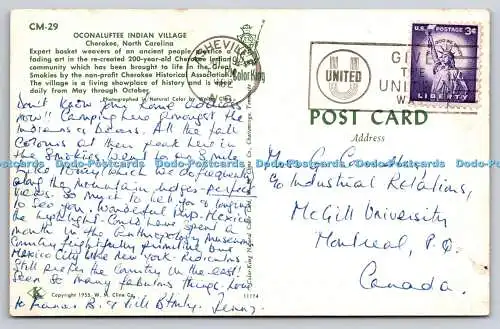 CM-29
OCONALUFTEE INDIAN VILLAGE
Cherokee, North Carolina
Expert basket weavers of an ancient people practice a
fading art in the re-created 200-year-old Cherokee Indian
community which has been brought to life in the Great
Smokies by the non-profit Cherokee Historical Association. The
village is a living showplace of history and is open
daily from May through October.
Photographed in Natural Color by
Color King
Don't know
now!! Camping here amongst the
Indians & bears. All the fall
colours at their peak here in
the Smokies
along the Mountain ledges - perfect
views. So much to tell you & longing
to see your wonderful trip. Mexico
the highlight - Could have spent a
month in the Anthropology Museum.
Country frightfully primitive but
Mexico City like New York - Ridiculous
Still prefer the Country in the east!
Seen so many fabulous things. Love
to
Jenny.
Copyright 1955, W. M. Cline Co.
11174
ASHEVILLE
PM
N.C.
UNITED
GIVE
THE
UNITED
WAY
U.S. POSTAGE
3¢
LIBERTY
POST CARD
Address
c/o Industrial Relations,
McGill University
Montreal, P.Q.
Canada.
Docards-Postcards